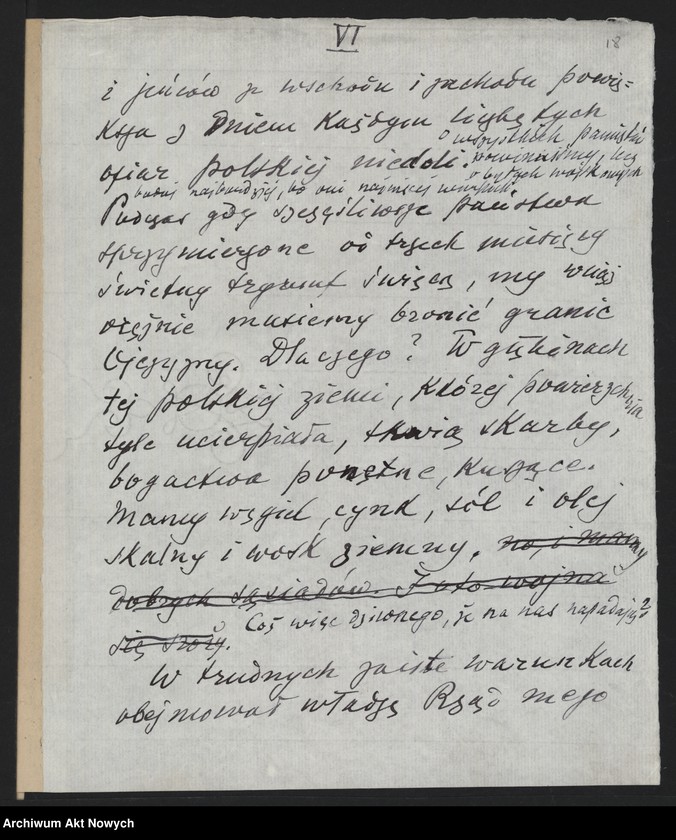 VI
18
i jeńców ze wschodu i zachodu powię=
ksza z Dniem Każdym liczbę tych
ofiar polskiej niedoli. o wszystkich pamiętać
powinniśmy, lecz
o byłych wojskowych
bodaj najbardziej, bo oni najmniej winni.
Podczas gdy szczęśliwsze państwa
sprzymierzone od trzech miesięcy
świetny tryumf święcą, my wciąż
orężnie musimy bronić granic
Ojczyzny. Dlaczego? W głębinach
tej polskiej ziemi, której powierzchnia
tyle ucierpiała, tkwią skarby,
bogactwa ponętne, kuszące.
Mamy węgiel, cynk, sól i olej
skalny i wosk ziemny, no, i mamy
dobrych sąsiadów. I oto wojna
się sroży. Cóż więc dziwnego, że na nas napadają?
W trudnych zaiste warunkach
obejmował władzę Rząd mego
Archiwum Akt Nowych